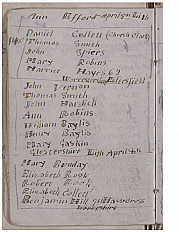 Ann Efford April 5th
Daniel Collett (Church Clark)
Thomas Smith
John Spiers
Mary Robins
Harriet Hayes 69
Worcestershire
John Vernon
Thomas Smith
John Harslich
Ann Robins
William Baylis
Henry Baylis
Mary Gaskin
Glostershire April 4th
Mary Bonday
Elizabeth Rook
Robert Rook
Elizabeth Collett
Benjamin Hill